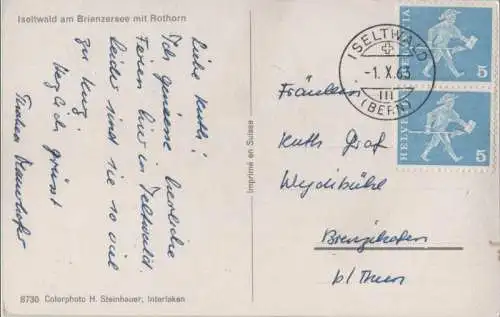 Iseltwald am Brienzersee mit Rothorn
Liebe Ruth!
Ich geniesse herrliche
Ferien hier in Iseltwald.
Leider sind sie so viel
zu kurz.
Herzlich grüsst
Imprimé en Suisse
8730 Colorphoto H. Steinhauer, Interlaken
ISELTWALD
-1.X.63
III
(BERN)
HELVETIA
5
HELVETIA
5
Fräulein
Ruth Graf
Weydibühl
b/Thun